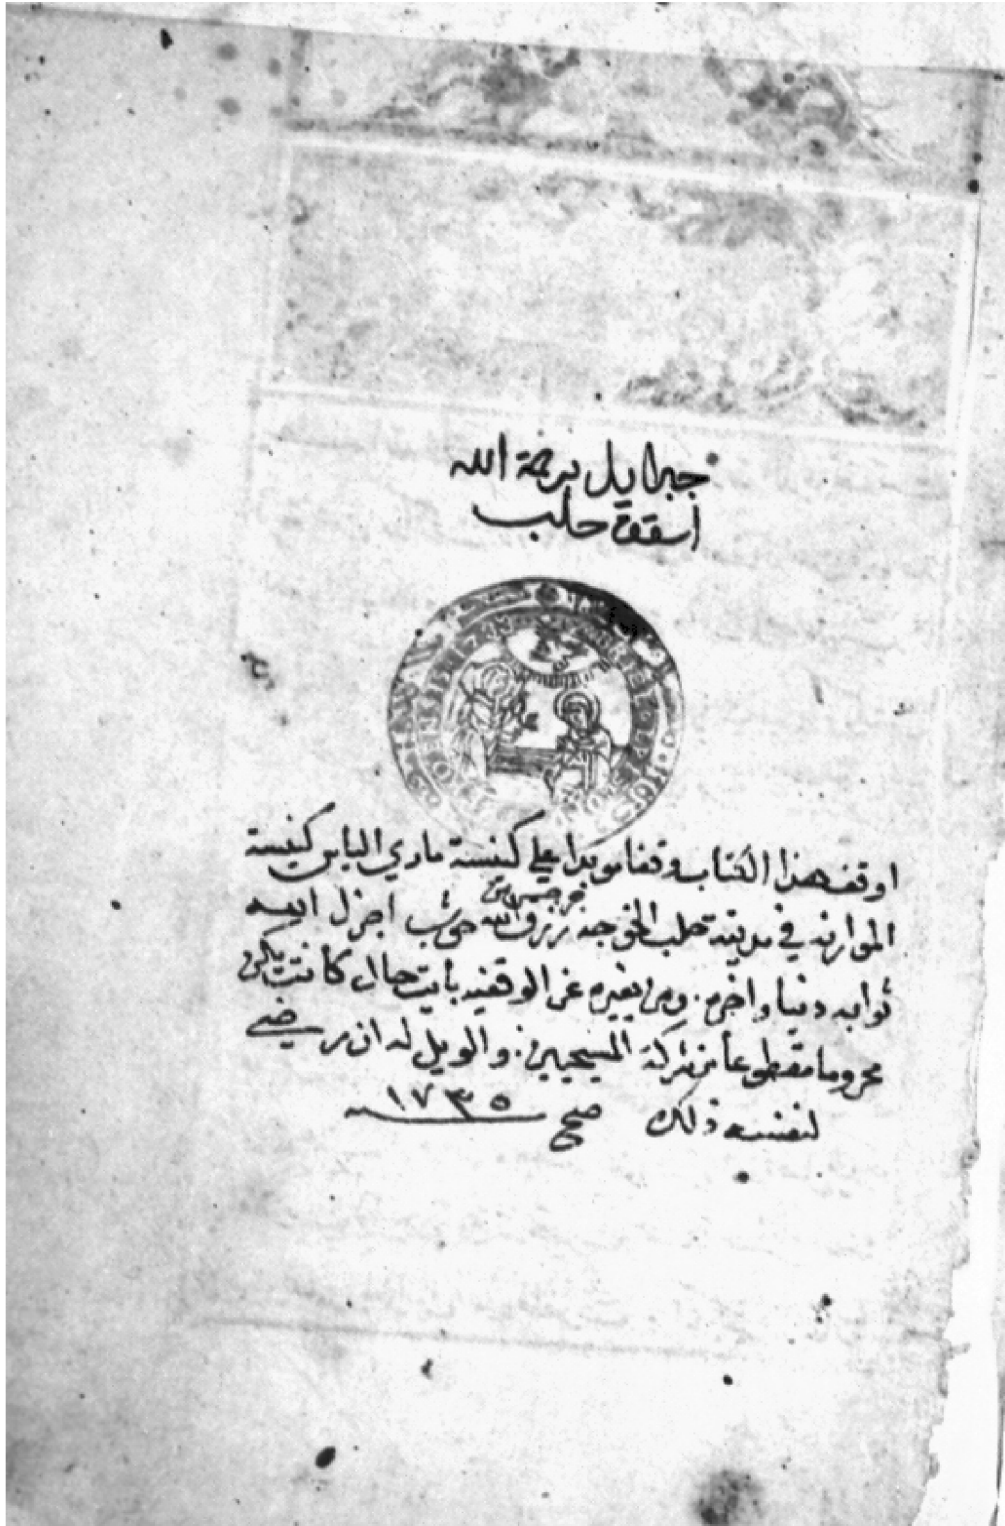 جبرايل برحمة الله
اسقف حلب
اوقف هذا الكتاب وقفا موبدا علي كنيسة ماري الياس كنيسة
الموارنه في مدينة حلب الخوجه رزق الله حوشب اجزل الله
ثوابه دنيا واخره. ومن يغيره عن الوقفيه بايت حال كانت يكن
محروما مقطوعا من شركة المسيحيين. والويل له ان رضي
لنفسه ذلك صح ١٧٣٥